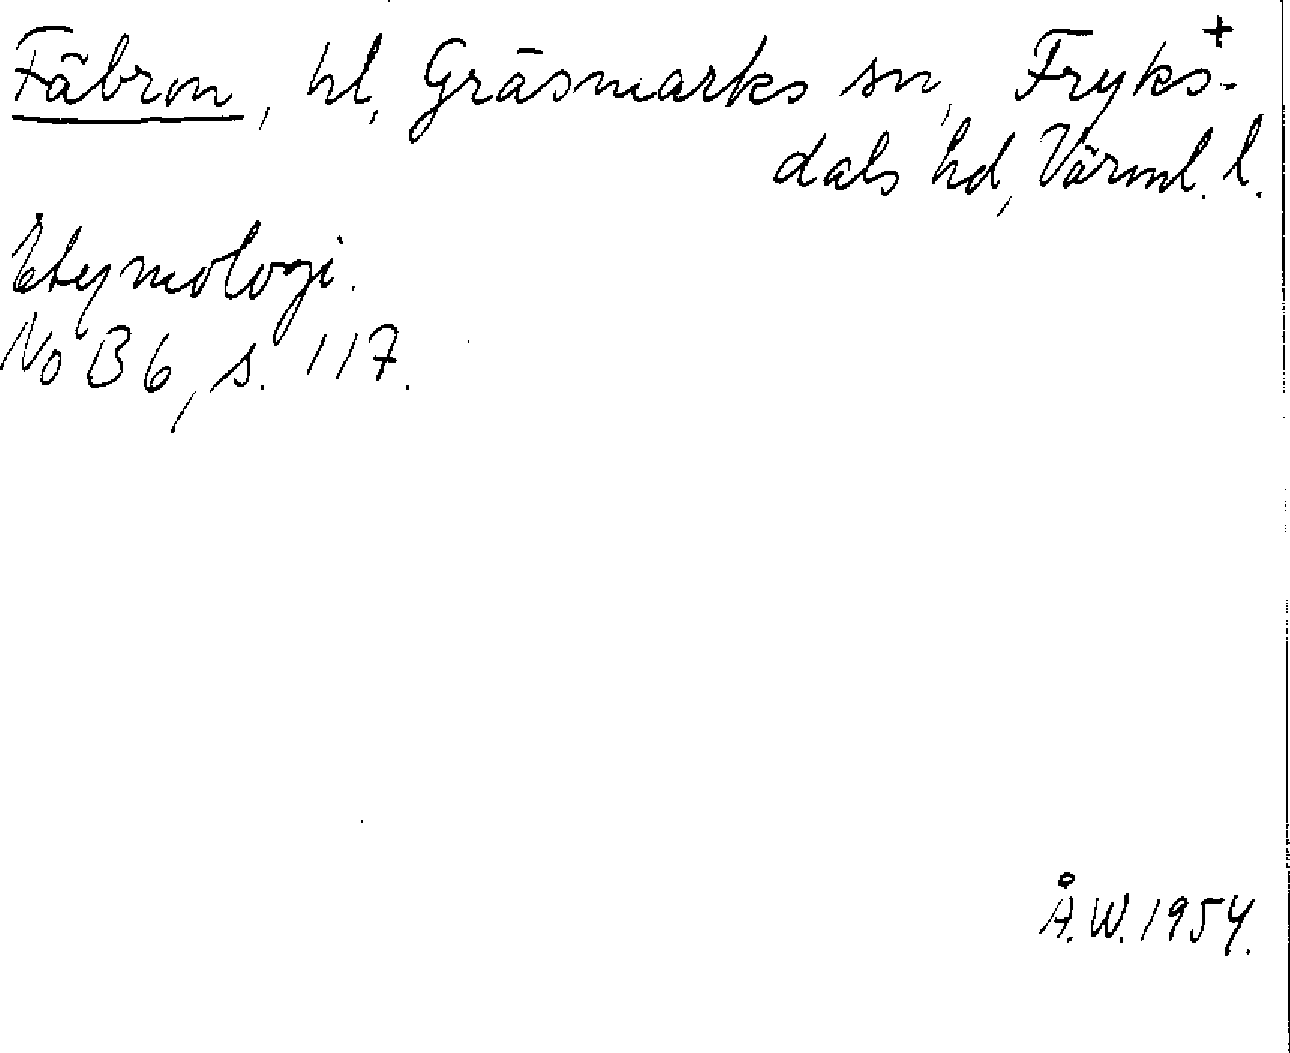 Fäbron, hl, Gräsmarks sn, Fryks-+
dals hd, Värml. l.
Etymologi.
NoB 6, s. 117.
Å.W. 1954.